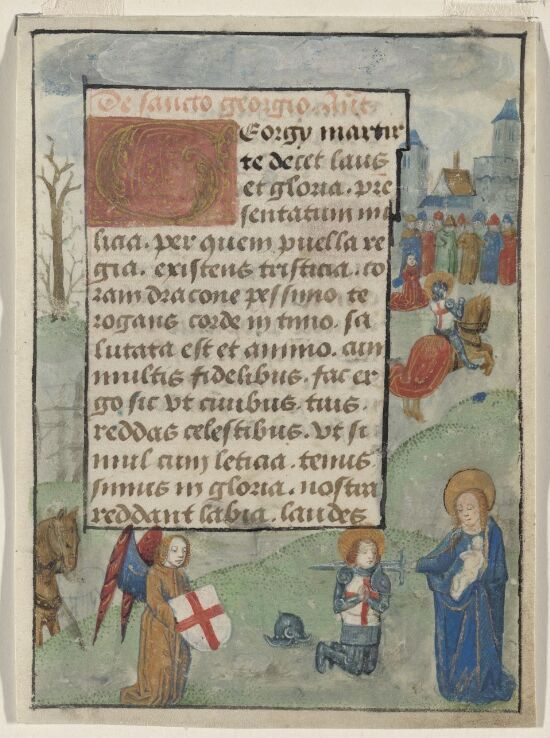 De sancto georgio. Ant.
Georgy martir
te decet laus
et gloria. pre
sentatum mi
licia. per quem puella re
gia. existens tristicia. co
ram dracone pessimo. te
rogans corde in timo. sa
lutata est et animo. cum
multis fidelibus. fac er
go sic vt ciuibus. tuis.
reddas celestibus. vt si
mul cum leticia. tenus
simus in gloria. nostra
reddant labia. laudes